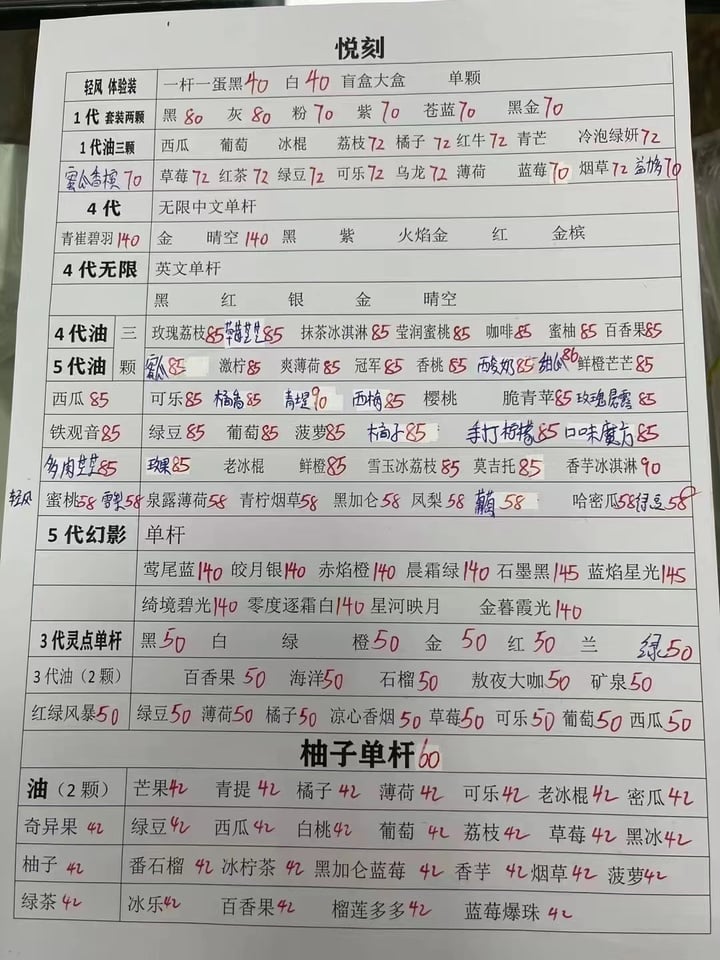 悦刻
轻风 体验装 一杆一蛋黑40 白40 盲盒大盒 单颗
1代 套装两颗 黑80 灰80 粉70 紫70 苍蓝70 黑金70
1代油三颗 西瓜 葡萄 冰棍 荔枝72 橘子72 红牛72 青芒 冷泡绿妍72
蜜瓜香槟70 草莓72 红茶72 绿豆72 可乐72 乌龙72 薄荷 蓝莓70 烟草72 益力多70
4代 无限中文单杆
青崔碧羽140 金 晴空140 黑 紫 火焰金 红 金槟
4代无限 英文单杆
黑 红 银 金 晴空
4代油 三 玫瑰荔枝85 草莓芝芝85 抹茶冰淇淋85 莹润蜜桃85 咖啡85 蜜柚85 百香果85
5代油 颗 蜜瓜85 激柠85 爽薄荷85 冠军85 香桃85 西酸奶85 甜瓜86 鲜橙芒芒85
西瓜85 可乐85 橘子85 青提90 西柚85 樱桃 脆青苹85 玫瑰85
铁观音85 绿豆85 葡萄85 菠萝85 橘子85 手打柠檬85 口味魔方85
多肉芝芝85 85 老冰棍 鲜橙85 雪玉冰荔枝85 莫吉托85 香芋冰淇淋90
轻风 蜜桃58 雪梨58 泉露薄荷58 青柠烟草58 黑加仑58 凤梨58 58 哈密瓜58 绿豆58
5代幻影 单杆
莺尾蓝140 皎月银140 赤焰橙140 晨霜绿140 石墨黑145 蓝焰星光145
绮境碧光140 零度逐霜白140 星河映月 金暮霞光140
3代灵点单杆 黑50 白 绿 橙50 金50 红50 兰 绿50
3代油（2颗） 百香果50 海洋50 石榴50 熬夜大咖50 矿泉50
红绿风暴50 绿豆50 薄荷50 橘子50 凉心香烟50 草莓50 可乐50 葡萄50 西瓜50
柚子单杆60
油（2颗） 芒果42 青提42 橘子42 薄荷42 可乐42 老冰棍42 密瓜42
奇异果42 绿豆42 西瓜42 白桃42 葡萄42 荔枝42 草莓42 黑冰42
柚子42 番石榴42 冰柠茶42 黑加仑蓝莓42 香芋42 烟草42 菠萝42
绿茶42 冰乐42 百香果42 榴莲多多42 蓝莓爆珠42